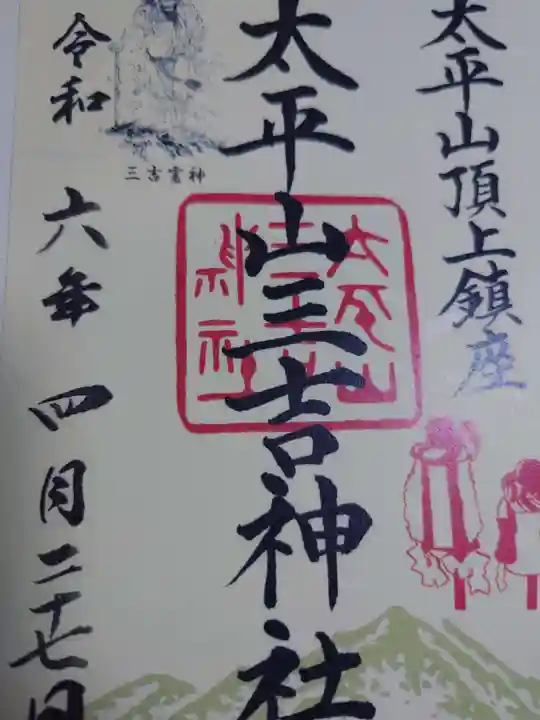 太平山頂上鎮座
太平山三吉神社
太平山
三吉
神社
三吉霊神
令和六年四月二十七日